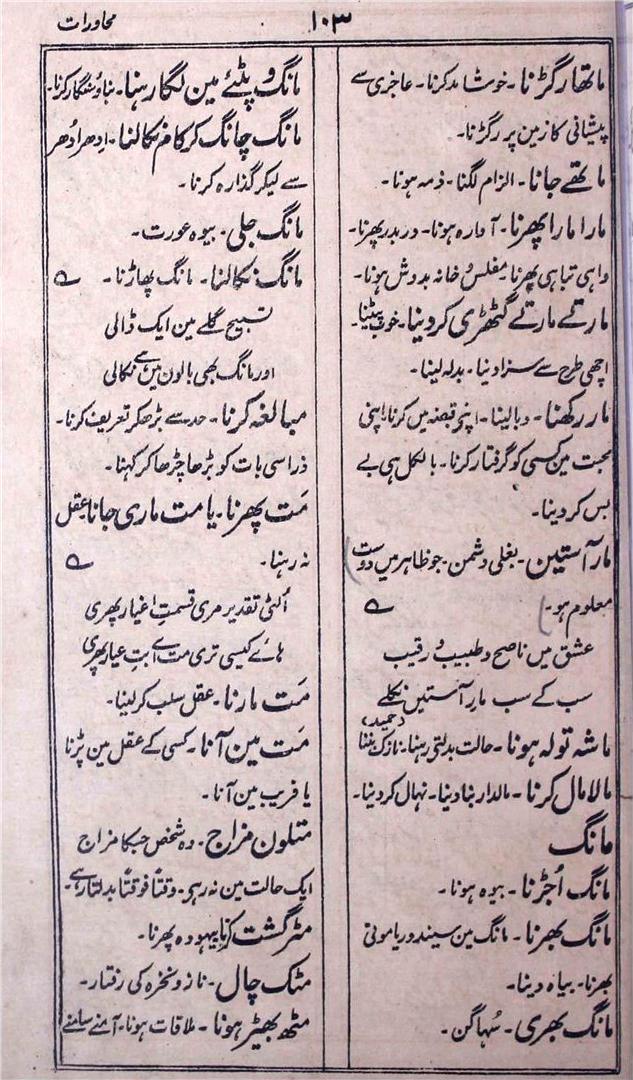 ۱۰۳
محاورات
ماتھا رگڑنا۔ خوشامد کرنا۔ عاجزی سے
پیشانی کا زمین پر رگڑنا۔
ماتھے جانا۔ الزام لگنا۔ ذمہ ہونا۔
مارا مارا پھرنا۔ آوارہ ہونا۔ در بدر پھرنا۔
واہی تباہی پھرنا۔ مفلس خانہ بدوش ہونا۔
مارتے مارتے گٹھڑی کر دینا۔ خوب پیٹنا۔
اچھی طرح سے سزا دنیا۔ بدلہ لینا۔
مار رکھنا۔ دبا لینا۔ اپنے قبضہ میں کرنا۔ اپنی
محبت مین کسی کو گرفتار کرنا۔ بالکل ہی بے
بس کر دینا۔
مار آستین۔ بغلی دشمن۔ جو ظاہر میں دوست
معلوم ہو۔ ؎
عشق میں ناصح و طبیب و رقیب
سب کے سب مارِ آستین نکلے
(حمید)
ماشہ تولہ ہونا۔ حالت بدلتی رہنا۔ نازک بننا
مالا مال کرنا۔ مالدار بنا دینا۔ نہال کر دینا۔
مانگ
مانگ اُجڑنا۔ بیوہ ہونا۔
مانگ بھرنا۔ مانگ مین سیندور یا موتی
بھرنا۔ بیاہ دینا۔
مانگ بھری۔ سُہاگن۔
مانگ و پٹئے مین لگا رہنا۔ بناؤ سنگار کرنا۔
مانگ چانگ کر کام نکالنا۔ اِدھر اُدھر
سے لیکر گذارہ کرنا۔
مانگ جلی۔ بیوہ عورت۔
مانگ نکالنا۔ مانگ پھاڑنا۔ ؎
تسبیح گلے مین ایک ڈالی
اور مانگ بھی بالون مین سے نکالی
مبالغہ کرنا۔ حد سے بڑھکر تعریف کرنا۔
ذرا سی بات کو بڑھا چڑھا کر کہنا۔
مَت پھرنا۔ یا مت ماری جانا۔ عقل
نہ رہنا۔ ؎
اُلٹی تقدیر مری قسمتِ اغیار پھری
ہائے کیسی تری مت اے بتِ عیار پھری
مَت مارنا۔ عقل سلب کر لینا۔
مَت مین آنا۔ کسی کے عقل مین پڑنا
یا فریب مین آنا۔
متلون مزاج۔ وہ شخص جسکا مزاج
ایک حالت مین نہ رہی۔ وقتاً فوقتاً بدلتا رہے۔
مٹر گشت کرنا۔ بیہودہ پھرنا۔
مٹک چال۔ ناز و نخرہ کی رفتار۔
مٹھ بھیڑ ہونا۔ ملاقات ہونا۔ آمنے سامنے